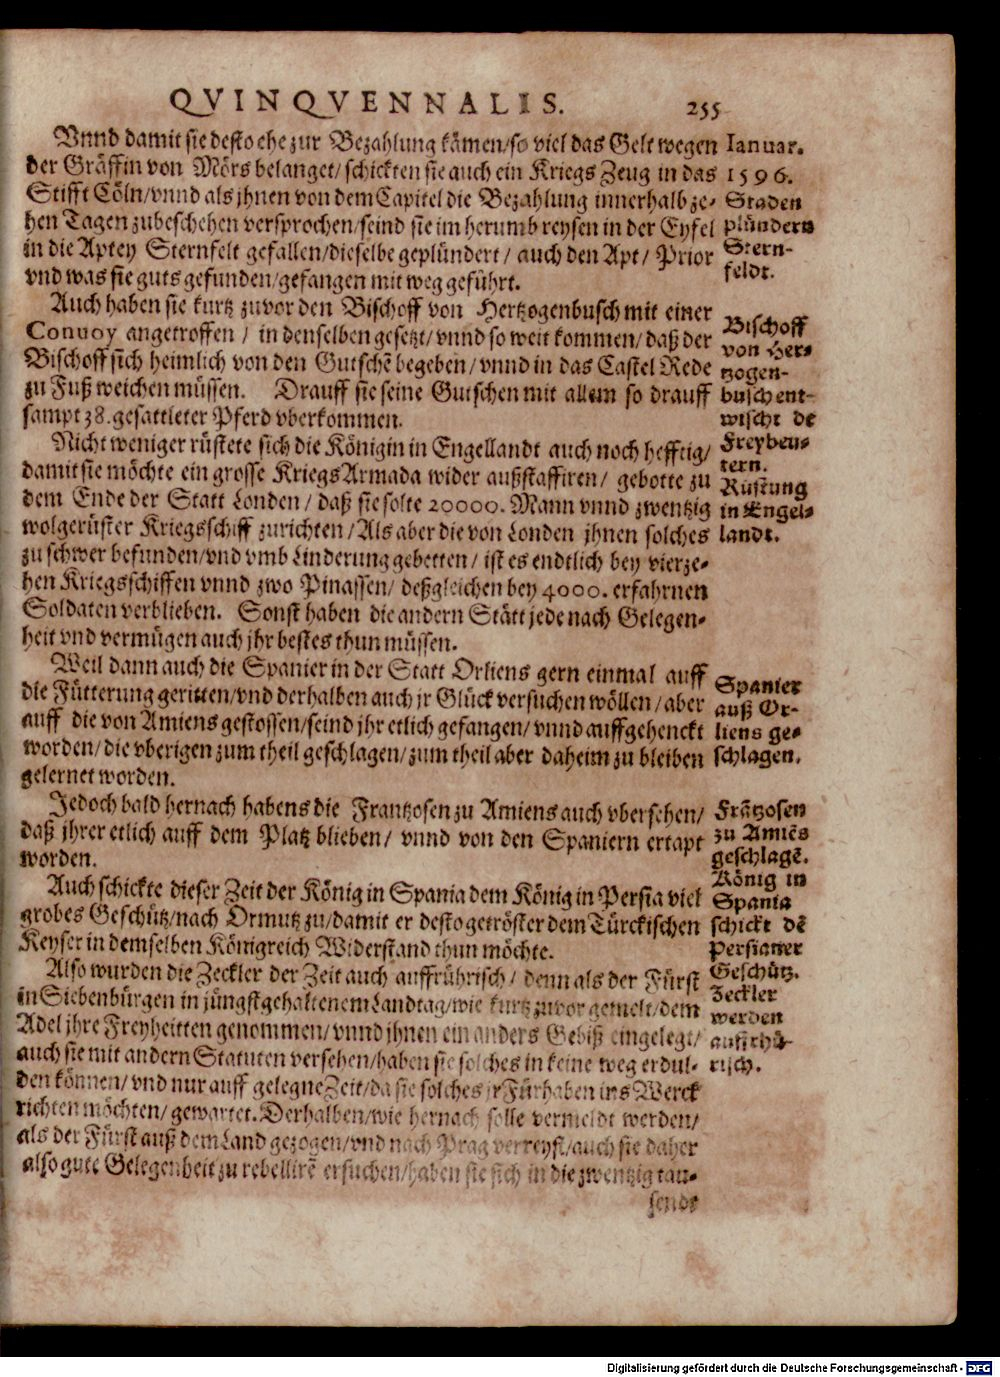 QVINQVENNALIS. 255
Vnnd damit sie desto ehe zur Bezahlung kämen/so viel das Gelt wegen
der Gräffin von Mörs belanget/schickten sie auch ein Kriegs Zeug in das
Stifft Cöln/vnnd als jhnen von dem Capitel die Bezahlung innerhalb ze-
hen Tagen zubeschehen versprochen/seind sie im herumb reysen in der Eyfel
in die Aptey Sternfelt gefallen/dieselbe geplündert/ auch den Apt/ Prior
vnd was sie guts gefunden/gefangen mit weg geführt.
Auch haben sie kurtz zuvor den Bischoff von Hertzogenbusch mit einer
Convoy angetroffen / in denselben gesetzt/vnnd so weit kommen/daß der
Bischoff sich heimlich von den Gutschē begeben/vnnd in das Castel Rede
zu Fuß weichen müssen. Drauff sie seine Gutschen mit allem so drauff
sampt 38. gesattleter Pferd vberkommen.
Nicht weniger rüstete sich die Königin in Engellandt auch noch hefftig/
damit sie möchte ein grosse KriegsArmada wider außstaffiren/ gebotte zu
dem Ende der Statt Londen/ daß sie solte 20000. Mann vnnd zwentzig
wolgerüster Kriegsschiff zurichten/Als aber die von Londen jhnen solches
zu schwer befunden/vnd vmb Linderung gebetten/ ist es endtlich bey vierze-
hen Kriegsschiffen vnnd zwo Pinassen/ deßgleichen bey 4000. erfahrnen
Soldaten verblieben. Sonst haben die andern Stätt jede nach Gelegen-
heit vnd vermügen auch jhr bestes thun müssen.
Weil dann auch die Spanier in der Statt Orliens gern einmal auff
die Fütterung geritten/vnd derhalben auch jr Glück versuchen wöllen/aber
auff die von Amiens gestossen/seind jhr etlich gefangen/vnnd auffgehenckt
worden/die vberigen zum theil geschlagen/zum theil aber daheim zu bleiben
gelernet worden.
Jedoch bald hernach habens die Frantzosen zu Amiens auch vbersehen/
daß jhrer etlich auff dem Platz blieben/ vnnd von den Spaniern ertapt
worden.
Auch schickte dieser Zeit der König in Spania dem König in Persia viel
grobes Geschütz/nach Ormutz zu/damit er desto getröster dem Türckischen
Keyser in demselben Königreich Widerstand thun möchte.
Also wurden die Zeckler der Zeit auch auffrührisch/ denn als der Fürst
in Siebenbürgen in jüngst gehaltenem Landtag/wie kurtz zuvor gemelt/dem
Adel jhre Freyheitten genommen/vnnd jhnen ein anders Gebiß eingelegt/
auch sie mit andern Statuten versehen/haben sie solches in keine weg erdul-
den können/vnd nur auff gelegne Zeit/da sie solches jr Fürhaben ins Werck
richten möchten/gewartet. Derhalben/wie hernach solle vermeldt werden/
als der Fürst auß dem Land gezogen/vnd nach Prag verreyst/auch sie daher
also gute Gelegenheit zu rebellirē ersuchen/haben sie sich in die zwentzig tau-
sendt
Ianuar.
1596.
Staden
plündern
Stern-
feldt.
Bischoff
von Her-
tzogen-
busch ent-
wischt dē
Freybeu-
tern.
Rüstung
in Engel-
landt.
Spanier
auß Or-
liens ge-
schlagen.
Frātzosen
zu Amiēs
geschlagē.
König in
Spania
schickt dē
Persianer
Geschütz.
Zeckler
werden
auffrhü-
risch.
Digitalisierung gefördert durch die Deutsche Forschungsgemeinschaft - DFG